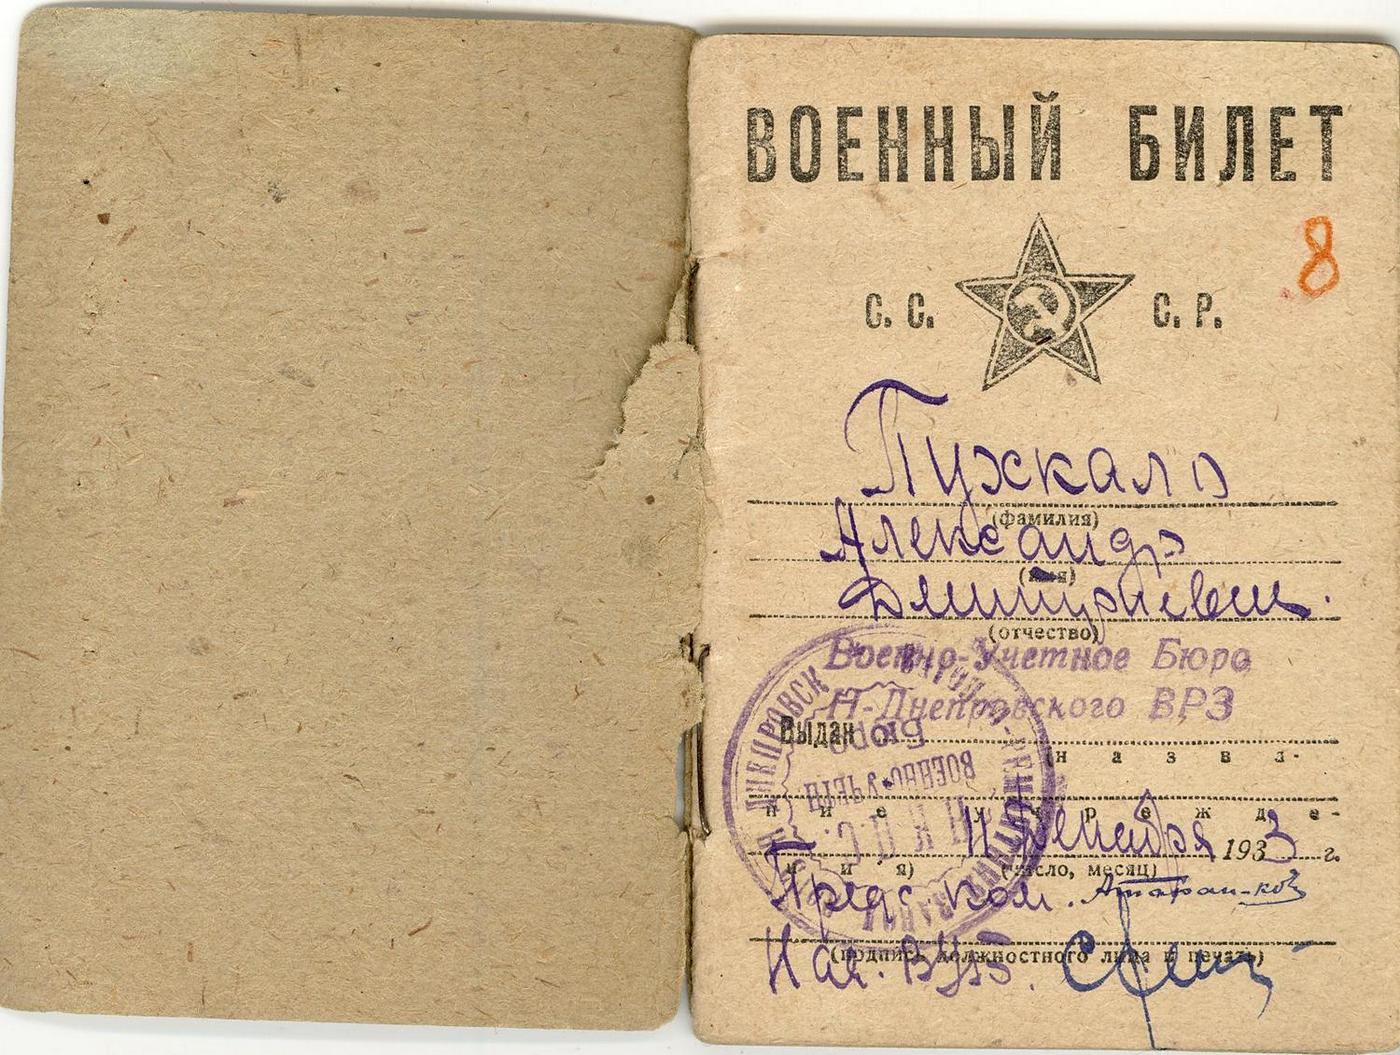 ВОЕННЫЙ БИЛЕТ
8
С. С. С. Р.
Пухкало
(фамилия)
Александр
(имя)
Дмитриевич.
(отчество)
Военно-Учетное Бюро
Н-Днепровского ВРЗ
Выдан
(н а з в а-
н и е у ч р е ж д е-
н и я)
11 1933 г.
(число, месяц)
Пред. ком.
(подпись должностного лица и печать)
Нач. ВУБ.